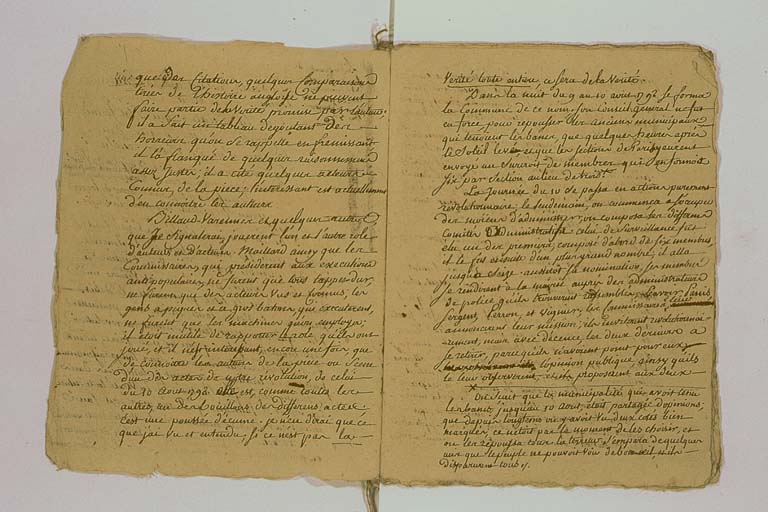 quelques citations, quelques comparaisons
tirées de l'histoire angloise ne peuvent
faire partie de la Verité promise par l'auteur;
il a fait un tableau degoutant des
horreurs qu'on se rappelle en fremissant
il la flanqué de quelques raisonnemens
assez justes; il a cité quelques acteurs
connus, de la piece; l'interessant est actuellement
d'en connoitre les auteurs
Billaud Varennes et quelques autres
que je signalerai, jouerent l'un et l'autre role
d'auteurs et d'acteurs. Maillard ainsy que les
Commissaires, qui présiderent aux executions
antipopulaires, ne furent que
ne furent que des acteurs vus et connus, les
gens à piques et à gros batons qui executerent,
ne furent que les machines qu'on employa,
il étoit inutile de rapporter le role qu'ils ont
joué, et il n'est interessant, encore une fois que
de connoitre les auteurs de la piece ou scene
d'un des actes de notre révolution, de celui
du 10 aout 1792 elle est comme toutes les
autres, un des de differens actes
c'est une poussée je n'en dirai que ce
que j'ai vu et entendu, si ce n'est pas la
Verité toute entiere, ce sera de la Verité.
Dans la nuit du 9 au 10 aout 1792 se forma
la Commune de ce nom, son Conseil general ne fut
en force pour repousser les anciens municipaux
qui tenoient les bancs que quelques heures après
le Soleil levé et que les sections de Paris y eurent
envoyé un surcroit de membres qui en formoit
six par Section au lieu de trois.
La journée du 10 se passa en actions purement
révolutionnaire, le lendemain, on commença a s'occuper
des moiens d'administrer, on composa les differens
Comités d'administration celui de Surveillance fut
élu un des premiers, composé d'abord de six membres
il le fos ensuite d'un plus grand nombre, il alla
jusqu'a seize aussitot sa nomination, ses membres
se rendirent a la mairie auprès des administrateurs
de police qu'ils trouverent rassemblés. Savoir Panis
Sergent, Perron, et Vignier, les Commissaires leur
annoncerent leur mission; ils inviterent revolutionnai-
rement, mais avec décence, les deux derniers a
se retirer, parcequ'ils n'avoient point pour eux
l'opinion publique, ainsy qu'ils
le leur observerent, et ils proposerent aux deux
On scait que la municipalité qui avoit tenu
les bancs jusqu'au 10 aout, etoit partagée d'opinions;
que depuis longtems on y avoit vu deux cotés bien
marqués, ce n'etoit pas le moment de les choisir, et
on les repoussa tous la terreur s'empara de quelques
uns que le peuple ne pouvoit voir de bon œil et ils
disparurent tous.